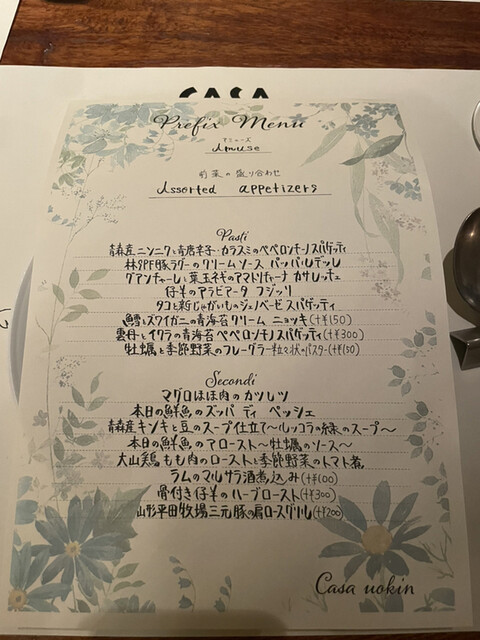 CASA
Prefix Menu
アミューズ
Amuse
前菜の盛り合わせ
Assorted appetizers
Pasti
青森産ニンニクと青唐辛子・カラスミのペペロンチーノスパゲッティ
林SPF豚ラグーのクリームソース パッパルデッレ
グアンチャーレと葉玉ネギのアマトリチャーナ カサレッチェ
仔羊のアラビアータ フジッリ
タコと新じゃがいものジェノベーゼスパゲッティ
鱈とズワイガニの青海苔クリーム ニョッキ(+¥150)
雲丹とイクラの青海苔ペペロンチーノスパゲッティ(+¥300)
牡蠣と季節野菜のフレーグラー粒々状のパスター(+¥150)
Secondi
マグロほほ肉のカツレツ
本日の鮮魚のズッパ ディ ペッシェ
青森産キンキと豆のスープ仕立て〜ルッコラの緑のスープ〜
本日の鮮魚のアロースト〜牡蠣のソース〜
大山鶏もも肉のローストと季節野菜のトマト煮
ラムのマルサラ酒煮込み(+¥100)
骨付き仔羊のハーブロースト(+¥300)
山形平田牧場三元豚の肩ロースグリル(+¥200)
Casa uokin